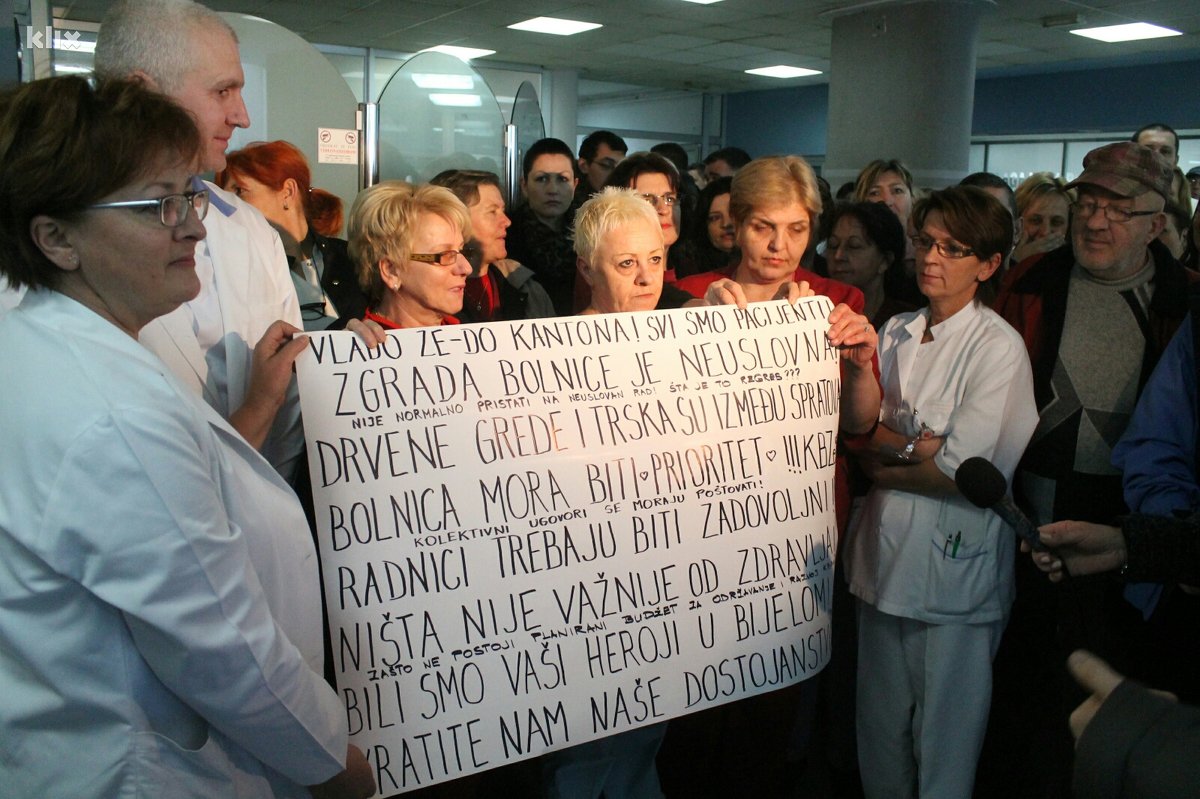 klix
VLADO ZE-DO KANTONA! SVI SMO PACIJENTI!
ZGRADA BOLNICE JE NEUSLOVNA
NIJE NORMALNO PRISTATI NA NEUSLOVAN RAD! ŠTA JE TO REGRES???
DRVENE GREDE I TRSKA SU IZMEĐU SPRATOVA
BOLNICA MORA BITI ♥ PRIORITET ♥ !!! KBZ
KOLEKTIVNI UGOVORI SE MORAJU POŠTOVATI!
RADNICI TREBAJU BITI ZADOVOLJNI
NIŠTA NIJE VAŽNIJE OD ZDRAVLJA
ZAŠTO NE POSTOJI PLANIRANI BUDŽET ZA ODRŽAVANJE I RAZVOJ
BILI SMO VAŠI HEROJI U BIJELOM
VRATITE NAM NAŠE DOSTOJANSTV